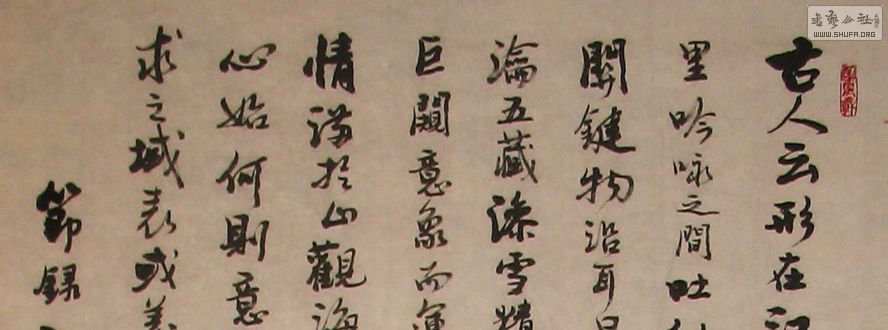 古人云形在
里吟咏之間吐
關鍵物沿耳
瀹五藏澡雪精
巨闕意象而運
情滿於山觀海
心始何則意
求之域表或義
節録
書藝公社
WWW.SHUFA.ORG